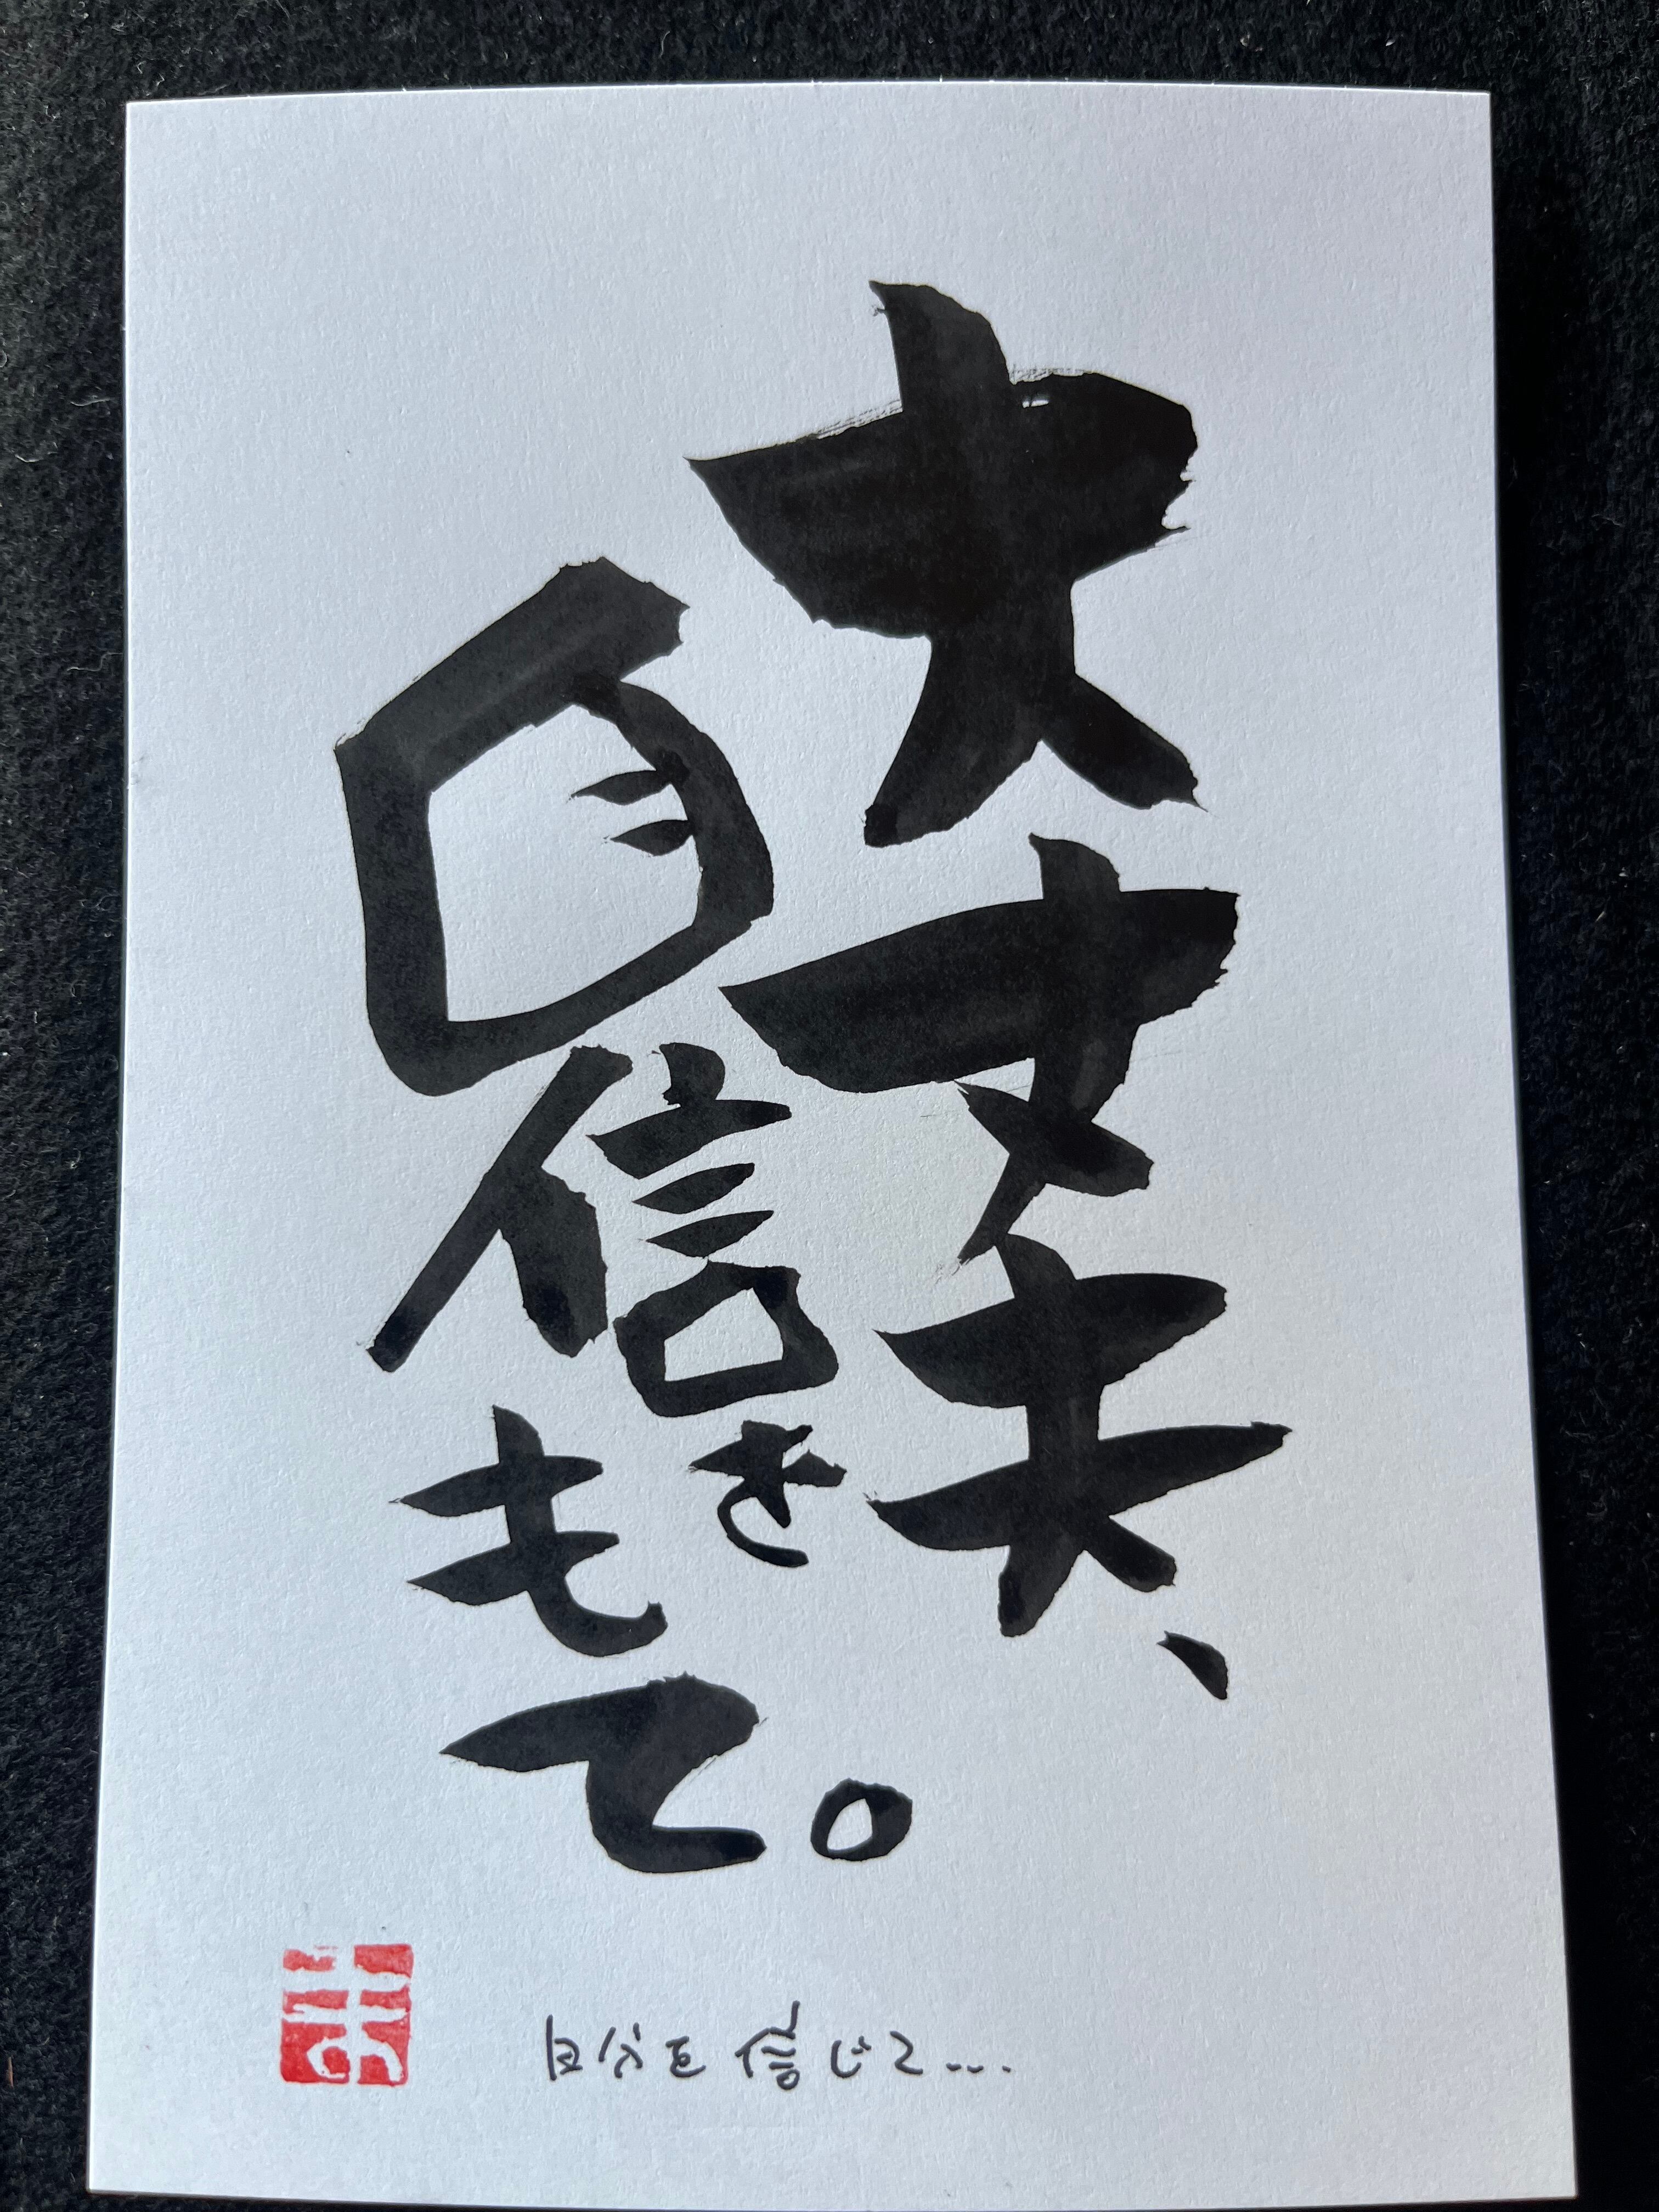 大丈夫、
自信を
もて。
自分を信じて...